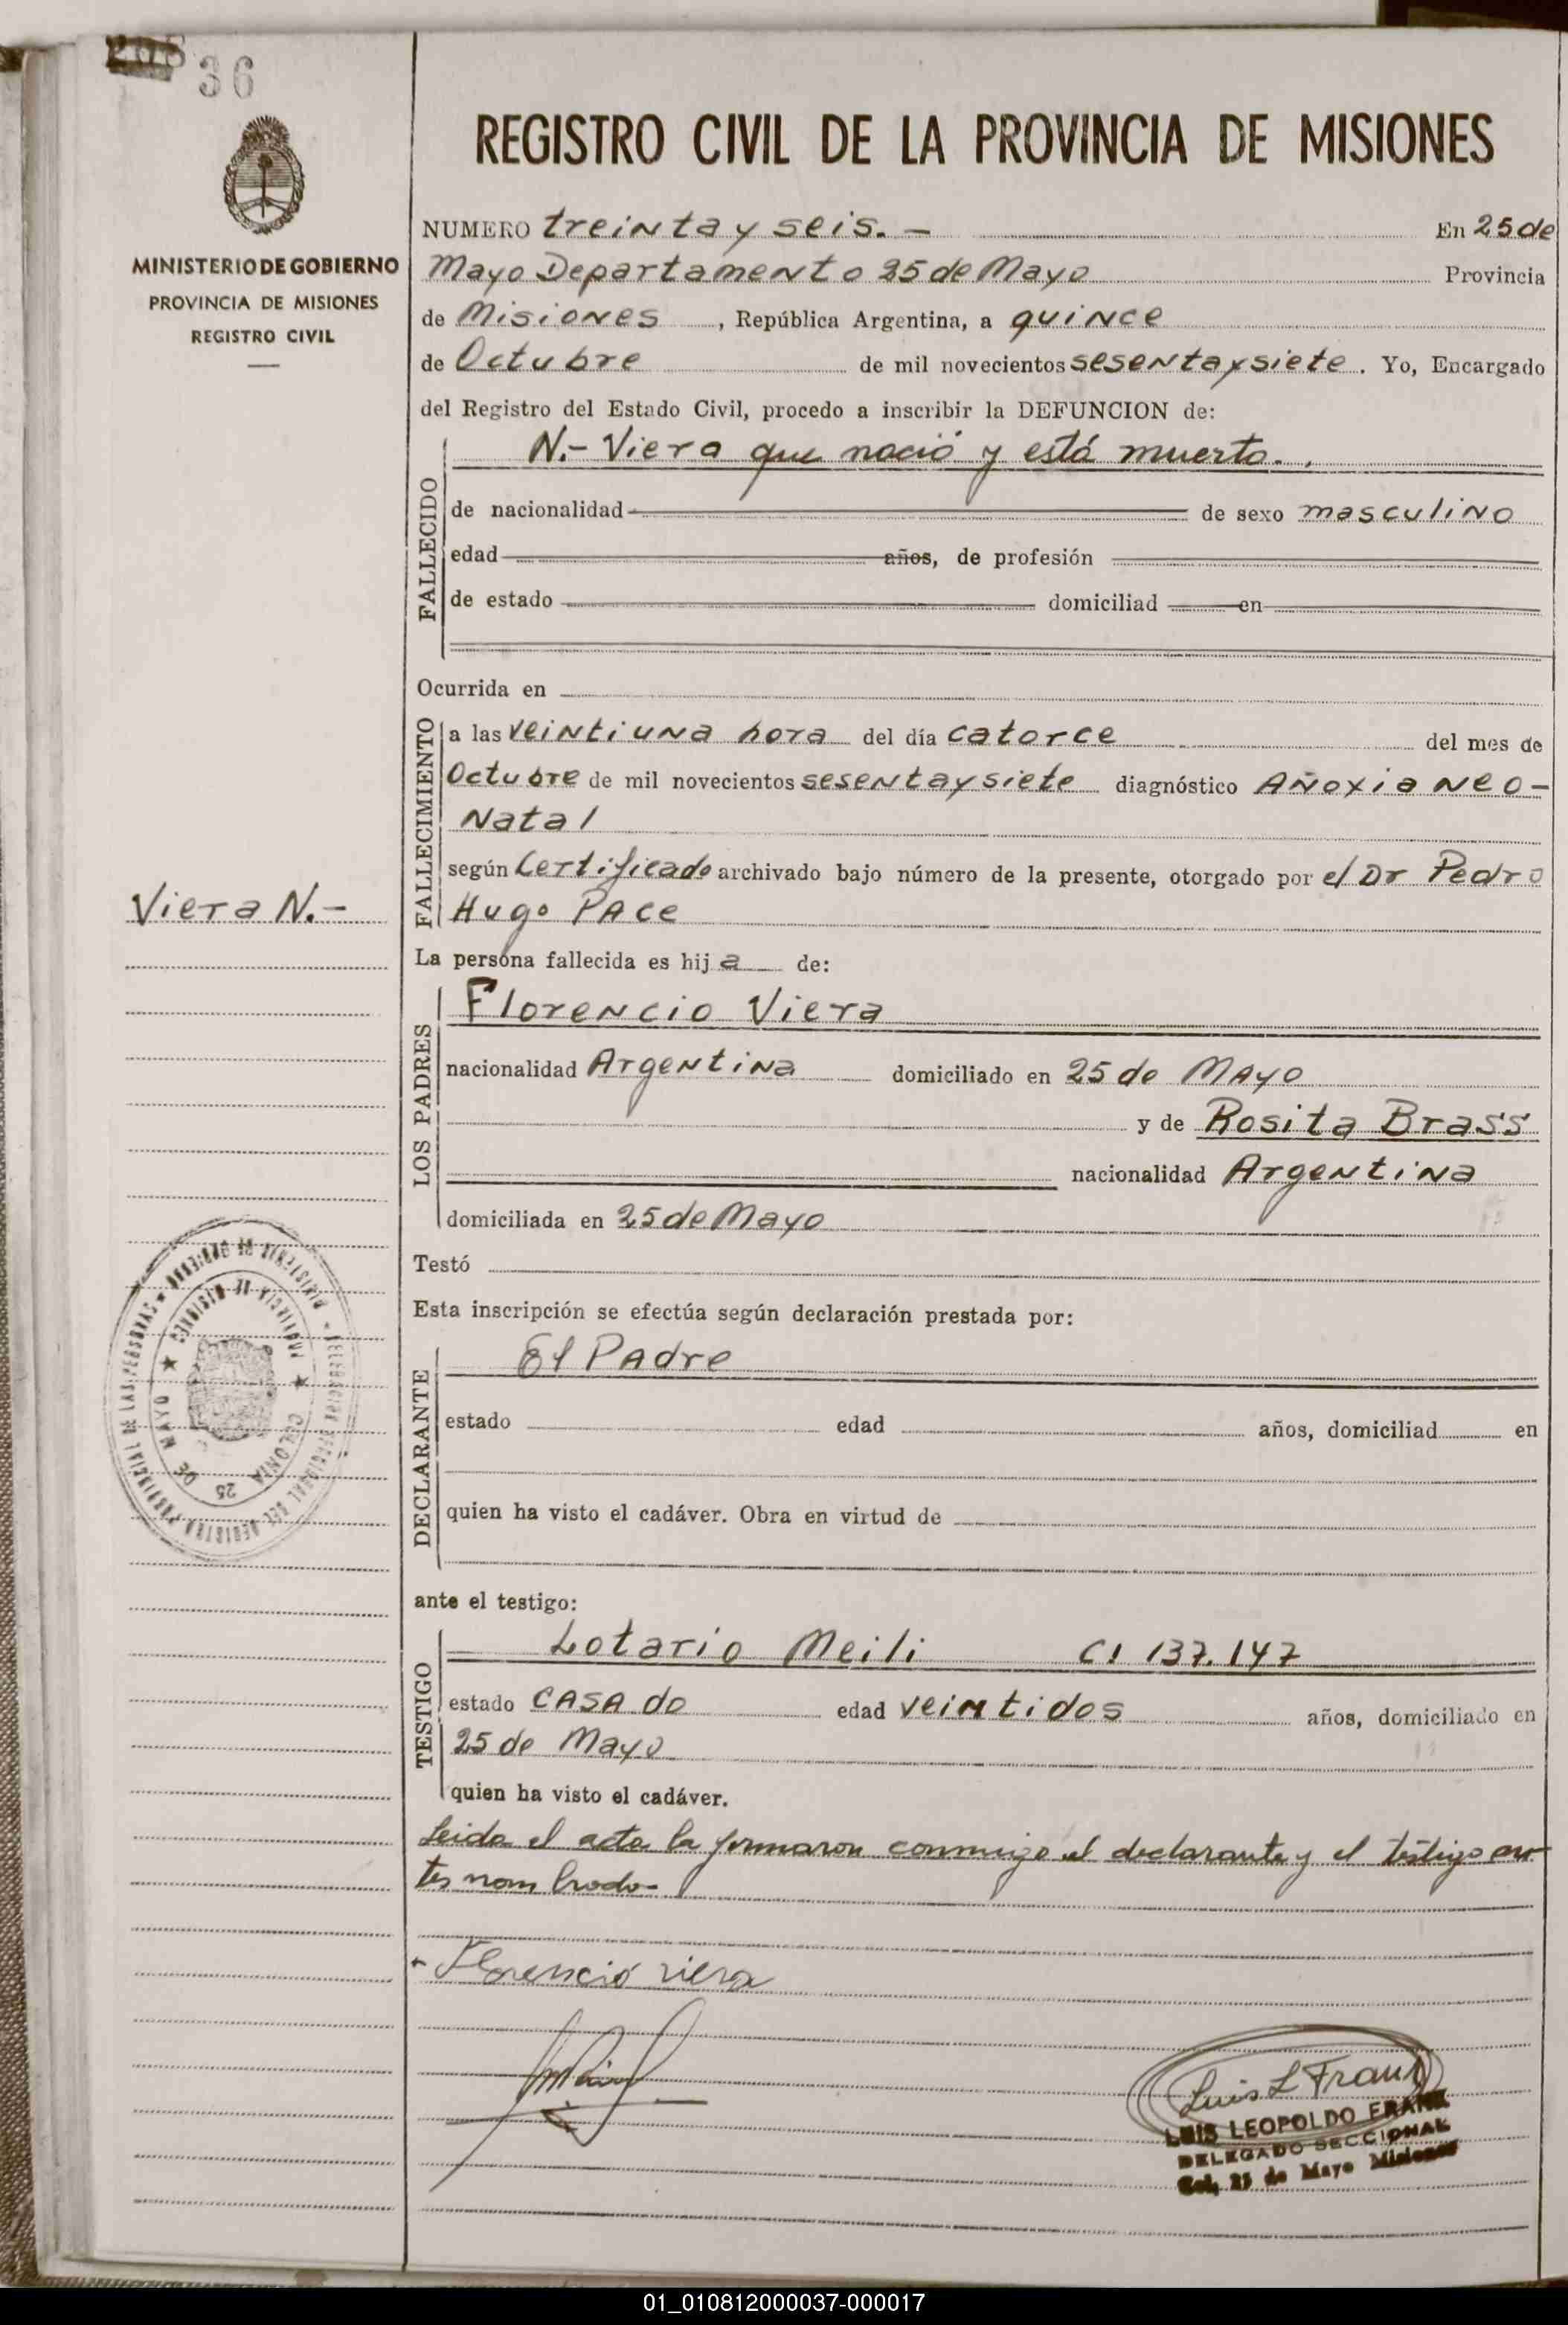 36
REGISTRO CIVIL DE LA PROVINCIA DE MISIONES
MINISTERIO DE GOBIERNO
PROVINCIA DE MISIONES
REGISTRO CIVIL
NUMERO treinta y seis. — En 25 de
Mayo Departamento 25 de Mayo Provincia
de Misiones, República Argentina, a quince
de Octubre de mil novecientos sesenta y siete. Yo, Encargado
del Registro del Estado Civil, procedo a inscribir la DEFUNCION de:
FALLECIDO
N.- Viera que nació y está muerto.
de nacionalidad de sexo masculino
edad años, de profesión
de estado domiciliad en
Ocurrida en
FALLECIMIENTO
a las veintiuna hora del día catorce del mes de
Octubre de mil novecientos sesenta y siete diagnóstico Añoxia Neo-
Natal
según Certificado archivado bajo número de la presente, otorgado por el Dr Pedro
Hugo Pace
Viera N.-
La persona fallecida es hij a de:
LOS PADRES
Florencio Viera
nacionalidad Argentina domiciliado en 25 de Mayo
y de Rosita Brass
nacionalidad Argentina
domiciliada en 25 de Mayo
Testó
Esta inscripción se efectúa según declaración prestada por:
DECLARANTE
El Padre
estado edad años, domiciliad en
quien ha visto el cadáver. Obra en virtud de
ante el testigo:
TESTIGO
Lotario Meili CI 137.147
estado Casado edad veintidos años, domiciliado en
25 de Mayo
quien ha visto el cadáver.
Leida el acta la firmaron conmigo el declarante y el testigo an-
tes nombrado-
Florencio viera
Luis L Frank
LUIS LEOPOLDO FRANK
DELEGADO SECCIONAL
Col. 25 de Mayo Misiones
PROVINCIA DE MISIONES
COLONIA 25 DE MAYO
01_010812000037-000017